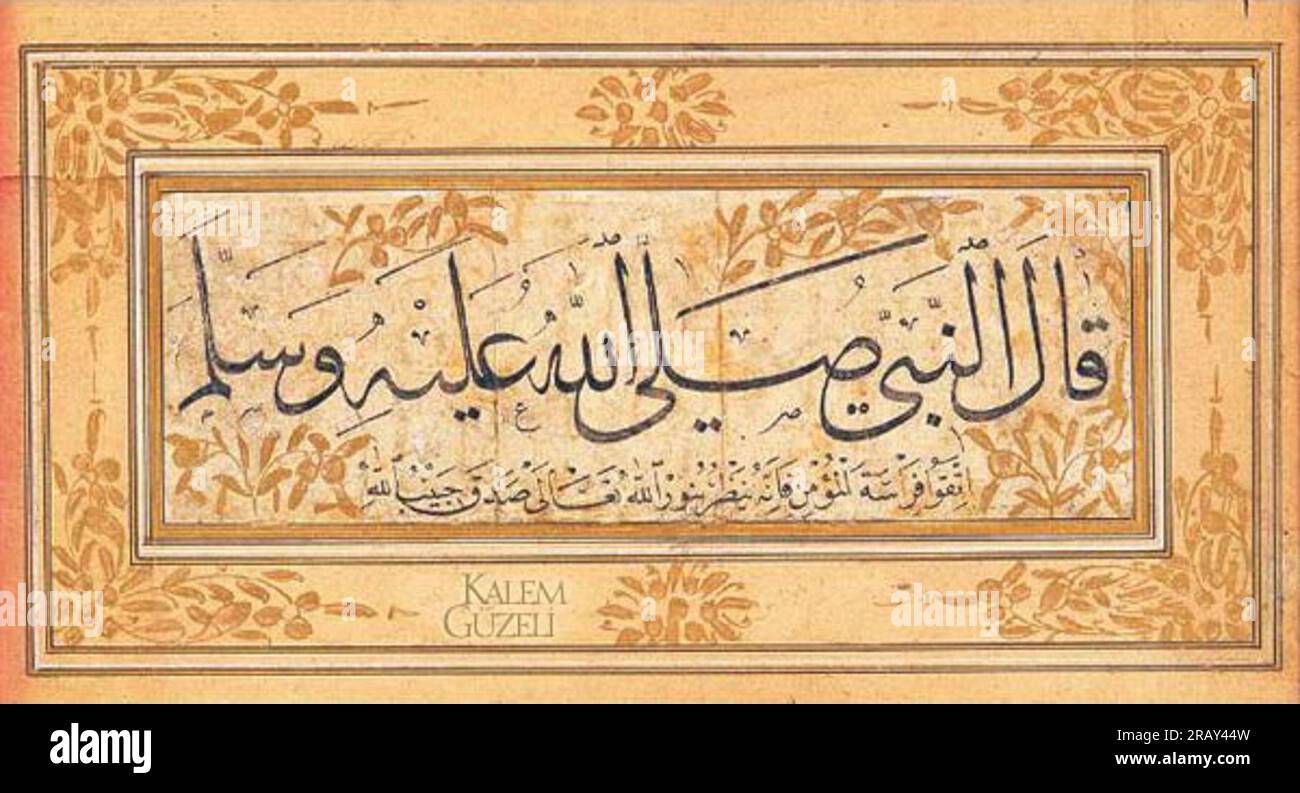 قَالَ النَّبِيُّ صَلَّى اللهُ عَلَيْهِ وَسَلَّمَ
اِتَّقُوا فَرَاسَةَ الْمُؤْمِنِ فَاِنَّهُ يَنْظُرُ بِنُورِ اللهِ تَعَالَى صَدَقَ حَبِيبُ اللهِ
KALEM
GÜZELİ
alamy
Image ID: 2RAY44W
www.alamy.com